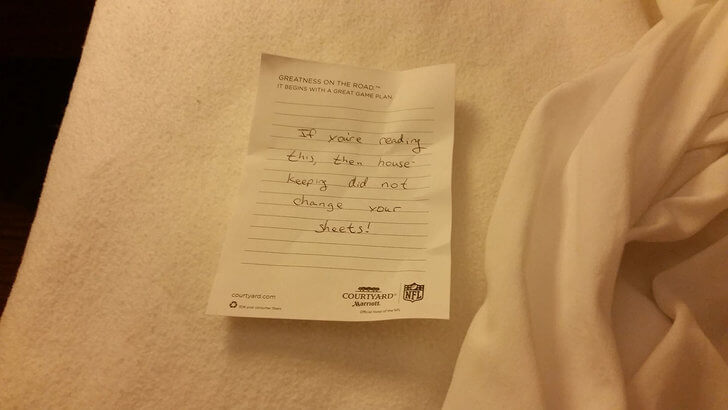 GREATNESS ON THE ROAD.™
IT BEGINS WITH A GREAT GAME PLAN.
If you're reading
this, then house-
keeping did not
change your
sheets!
courtyard.com
COURTYARD®
Marriott
NFL
Official Hotel of the NFL